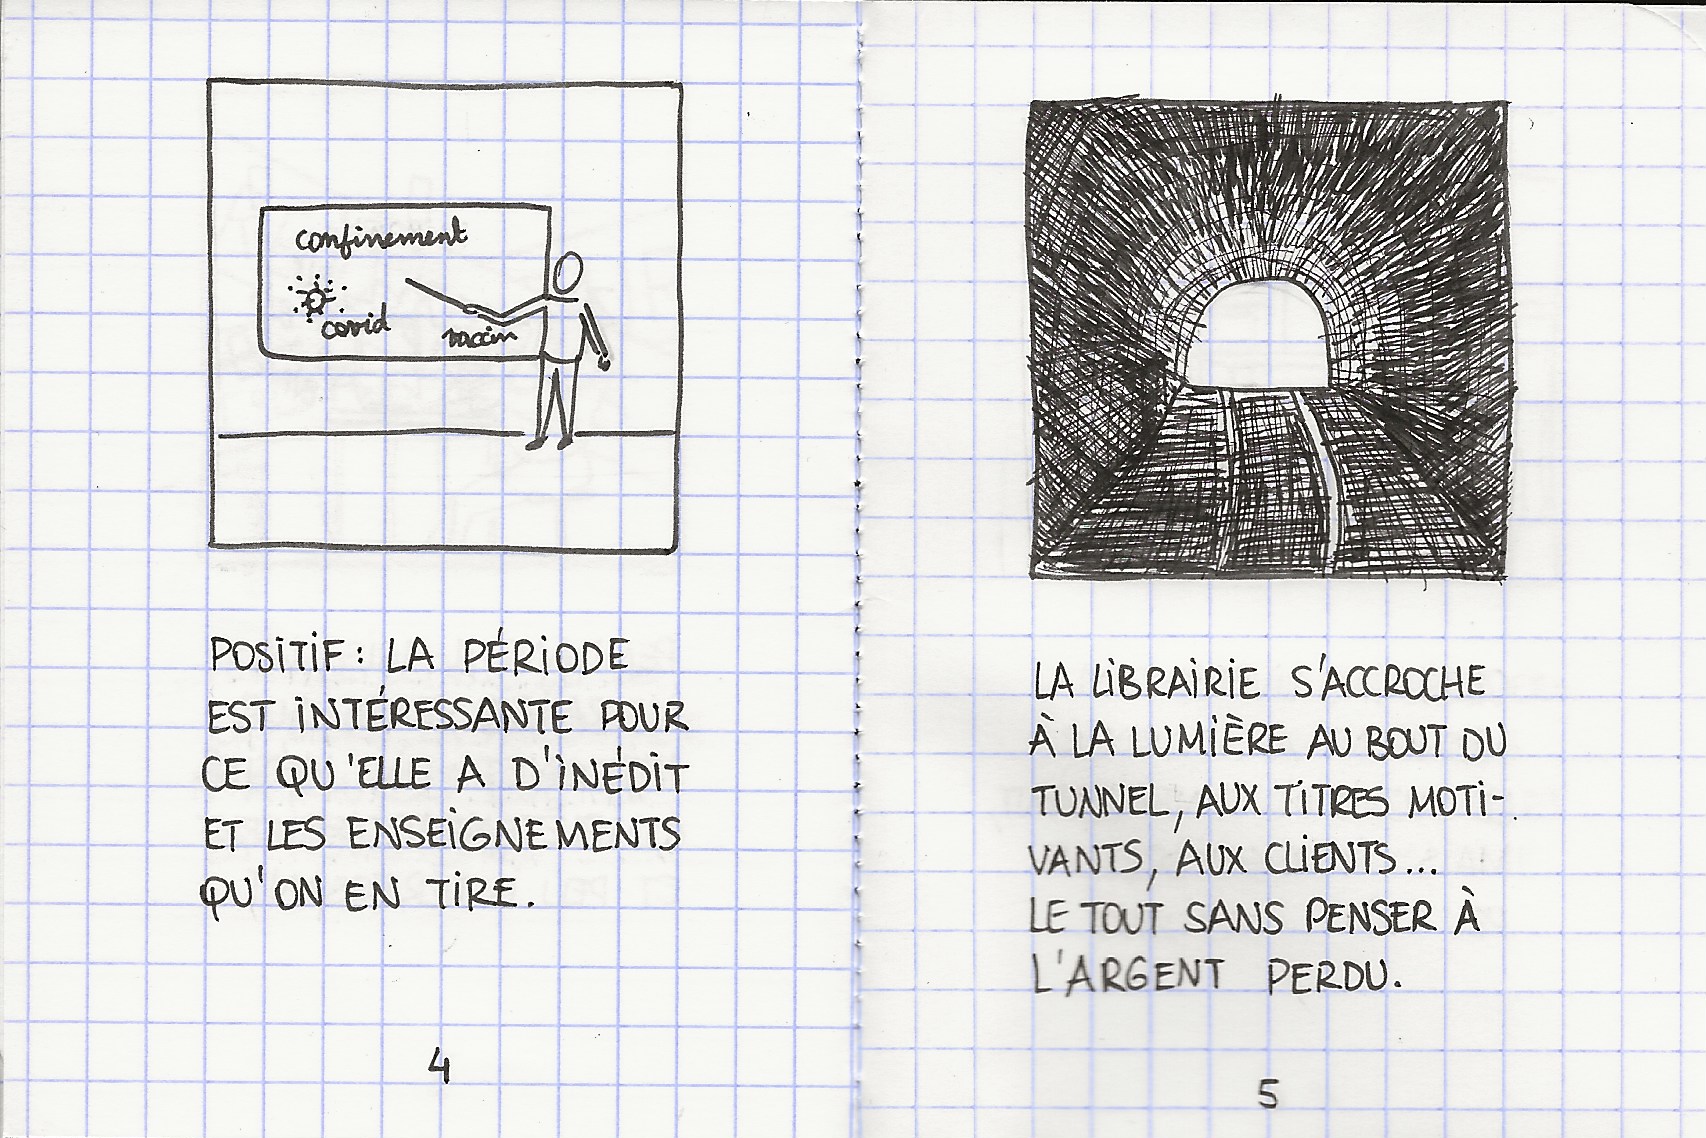 confinement
covid
vaccin
POSITIF : LA PÉRIODE
EST INTÉRESSANTE POUR
CE QU'ELLE A D'INÉDIT
ET LES ENSEIGNEMENTS
QU'ON EN TIRE.
4
LA LIBRAIRIE S'ACCROCHE
À LA LUMIÈRE AU BOUT DU
TUNNEL, AUX TITRES MOTI-
VANTS, AUX CLIENTS...
LE TOUT SANS PENSER À
L'ARGENT PERDU.
5